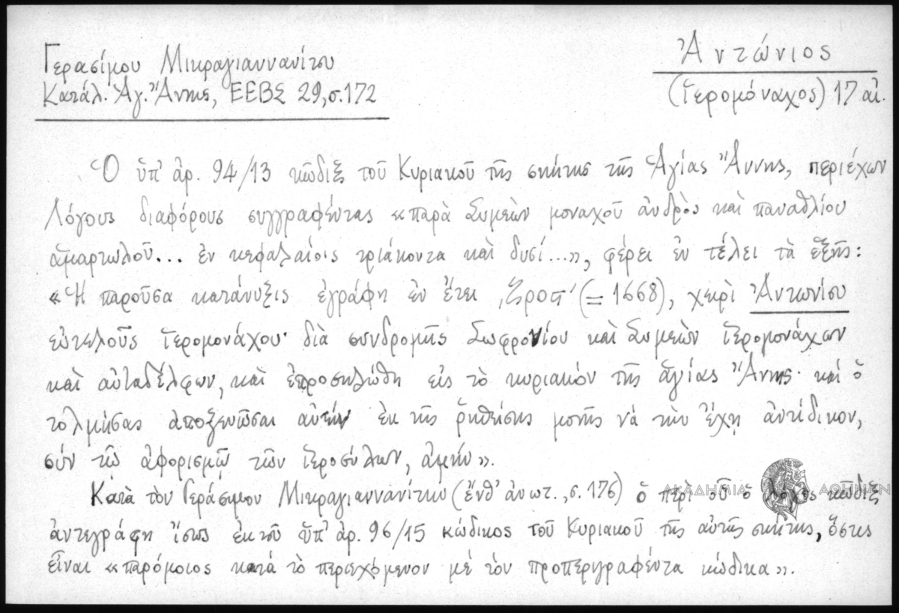 Γερασίμου Μικραγιαννανίτου
Κατάλ. Ἁγ. Ἄννης, ΕΕΒΣ 29, σ. 172
Ἀντώνιος
(Ἱερομόναχος) 17 αἰ.
Ὁ ὑπ' ἀρ. 94/13 κῶδιξ τοῦ Κυριακοῦ τῆς σκήτης τῆς Ἁγίας Ἄννης, περιέχων
Λόγους διαφόρους συγγραφέντας «παρὰ Συμεὼν μοναχοῦ ἀνδρὸς καὶ παναθλίου
ἁμαρτωλοῦ... ἐν κεφαλαίοις τριάκοντα καὶ δυσί...», φέρει ἐν τέλει τὰ ἑξῆς:
«Ἡ παροῦσα κατάνυξις ἐγράφη ἐν ἔτει ͵ζροϛ' (= 1668), χειρὶ Ἀντωνίου
εὐτελοῦς ἱερομονάχου· διὰ συνδρομῆς Σωφρονίου καὶ Συμεὼν ἱερομονάχων
καὶ αὐταδέλφων, καὶ ἐπροσηλώθη εἰς τὸ κυριακὸν τῆς ἁγίας Ἄννης· καὶ ὁ
τολμήσας ἀποξενῶσαι αὐτὴν ἐκ τῆς ῥηθείσης μονῆς νὰ τὴν ἔχῃ ἀντίδικον,
σὺν τῷ ἀφορισμῷ τῶν ἱεροσύλων, ἀμήν».
Κατὰ τὸν Γεράσιμον Μικραγιαννανίτην (ἔνθ' ἀνωτ., σ. 176) ὁ περὶ οὗ ὁ λόγος κῶδιξ
ἀντεγράφη ἴσως ἐκ τοῦ ὑπ' ἀρ. 96/15 κώδικος τοῦ Κυριακοῦ τῆς αὐτῆς σκήτης, ὅστις
εἶναι «παρόμοιος κατὰ τὸ περιεχόμενον μὲ τὸν προπεριγραφέντα κώδικα».
ΑΚΑΔΗΜΙΑ ΑΘΗΝΩΝ